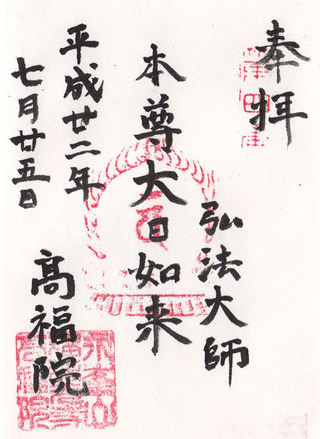 奉拝
弘法大師
本尊大日如来
平成廿二年
七月廿五日
高福院